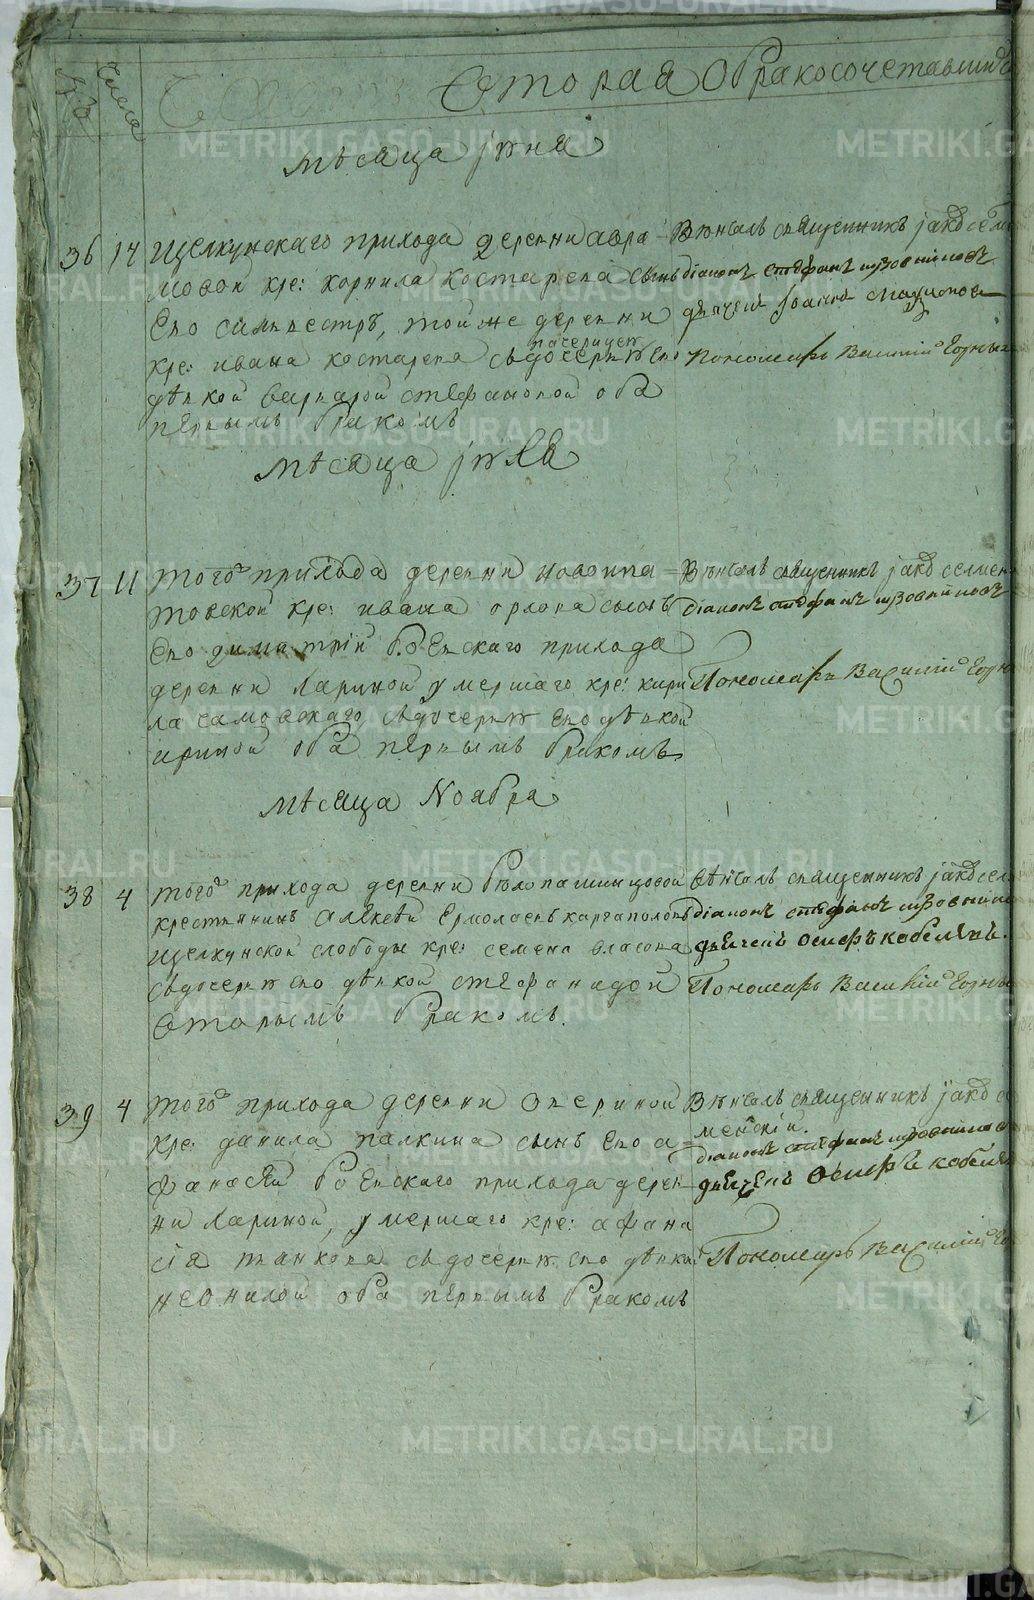 №
Числа
Вторая о бракосочетавших
мѣсяца іюня
36 14 Щелкунскаго прихода деревни Авра-
мовой кре: корнила костарева сынъ
Ево силивестръ, той же деревни
кре: ивана костарева съ дочерью Ево
падчерицею
дѣвкой варварой стефановой оба
первымъ бракомъ
Вѣнчалъ священникъ іаковъ семе
діаконъ стефанъ
дьячекъ іоаннъ
Пономарь Василий
мѣсяца іюля
37 11 того прихода деревни новоипа-
товской кре: ивана орлова сынъ
Ево димитрий боевскаго прихода
деревни Лариной умершаго кре: кири
ла самовскаго съ дочерью Ево дѣвкой
ириной оба первымъ бракомъ
Вѣнчалъ священникъ іаковъ семен
діаконъ стефанъ
Пономарь Василий
мѣсяца Ноября
38 4 того прихода деревни
крестьянинъ Алексей Ермолаевъ каргаполовъ
щелкунской слободы кре: семена власова
съ дочерью Ево дѣвкой стефанидой
вторымъ бракомъ
вѣнчалъ священникъ іаковъ сем
діаконъ стефанъ
дьячекъ Осипъ кобелевъ.
Пономарь Василий
39 4 того прихода деревни Авериной
кре: данила палкина сынъ Ево а-
фанасей боевскаго прихода дерев
ни Лариной, умершаго кре: афана
сія с дочерью ево дѣвкой
неонилой оба первымъ бракомъ
Вѣнчалъ священникъ іаковъ се
менский.
діаконъ стефанъ
дьячекъ Осипъ кобелев
Пономарь Василий
METRIKI.GASO-URAL.RU